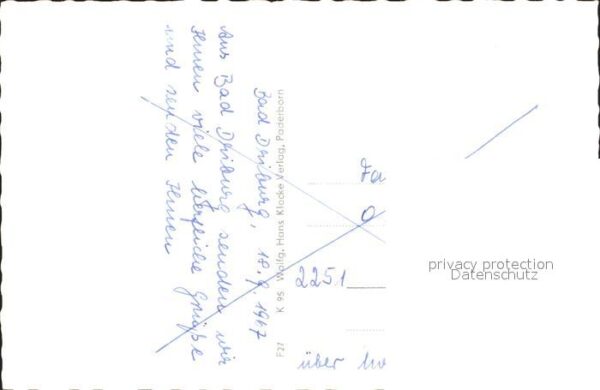 Bad Driburg, 18.9.1967
Aus Bad Driburg senden wir
Ihnen viele herzliche Grüße
und senden Ihnen
F27 K 95 Wolfg. Hans Klocke Verlag, Paderborn
Fa
O
2251
über
privacy protection
Datenschutz